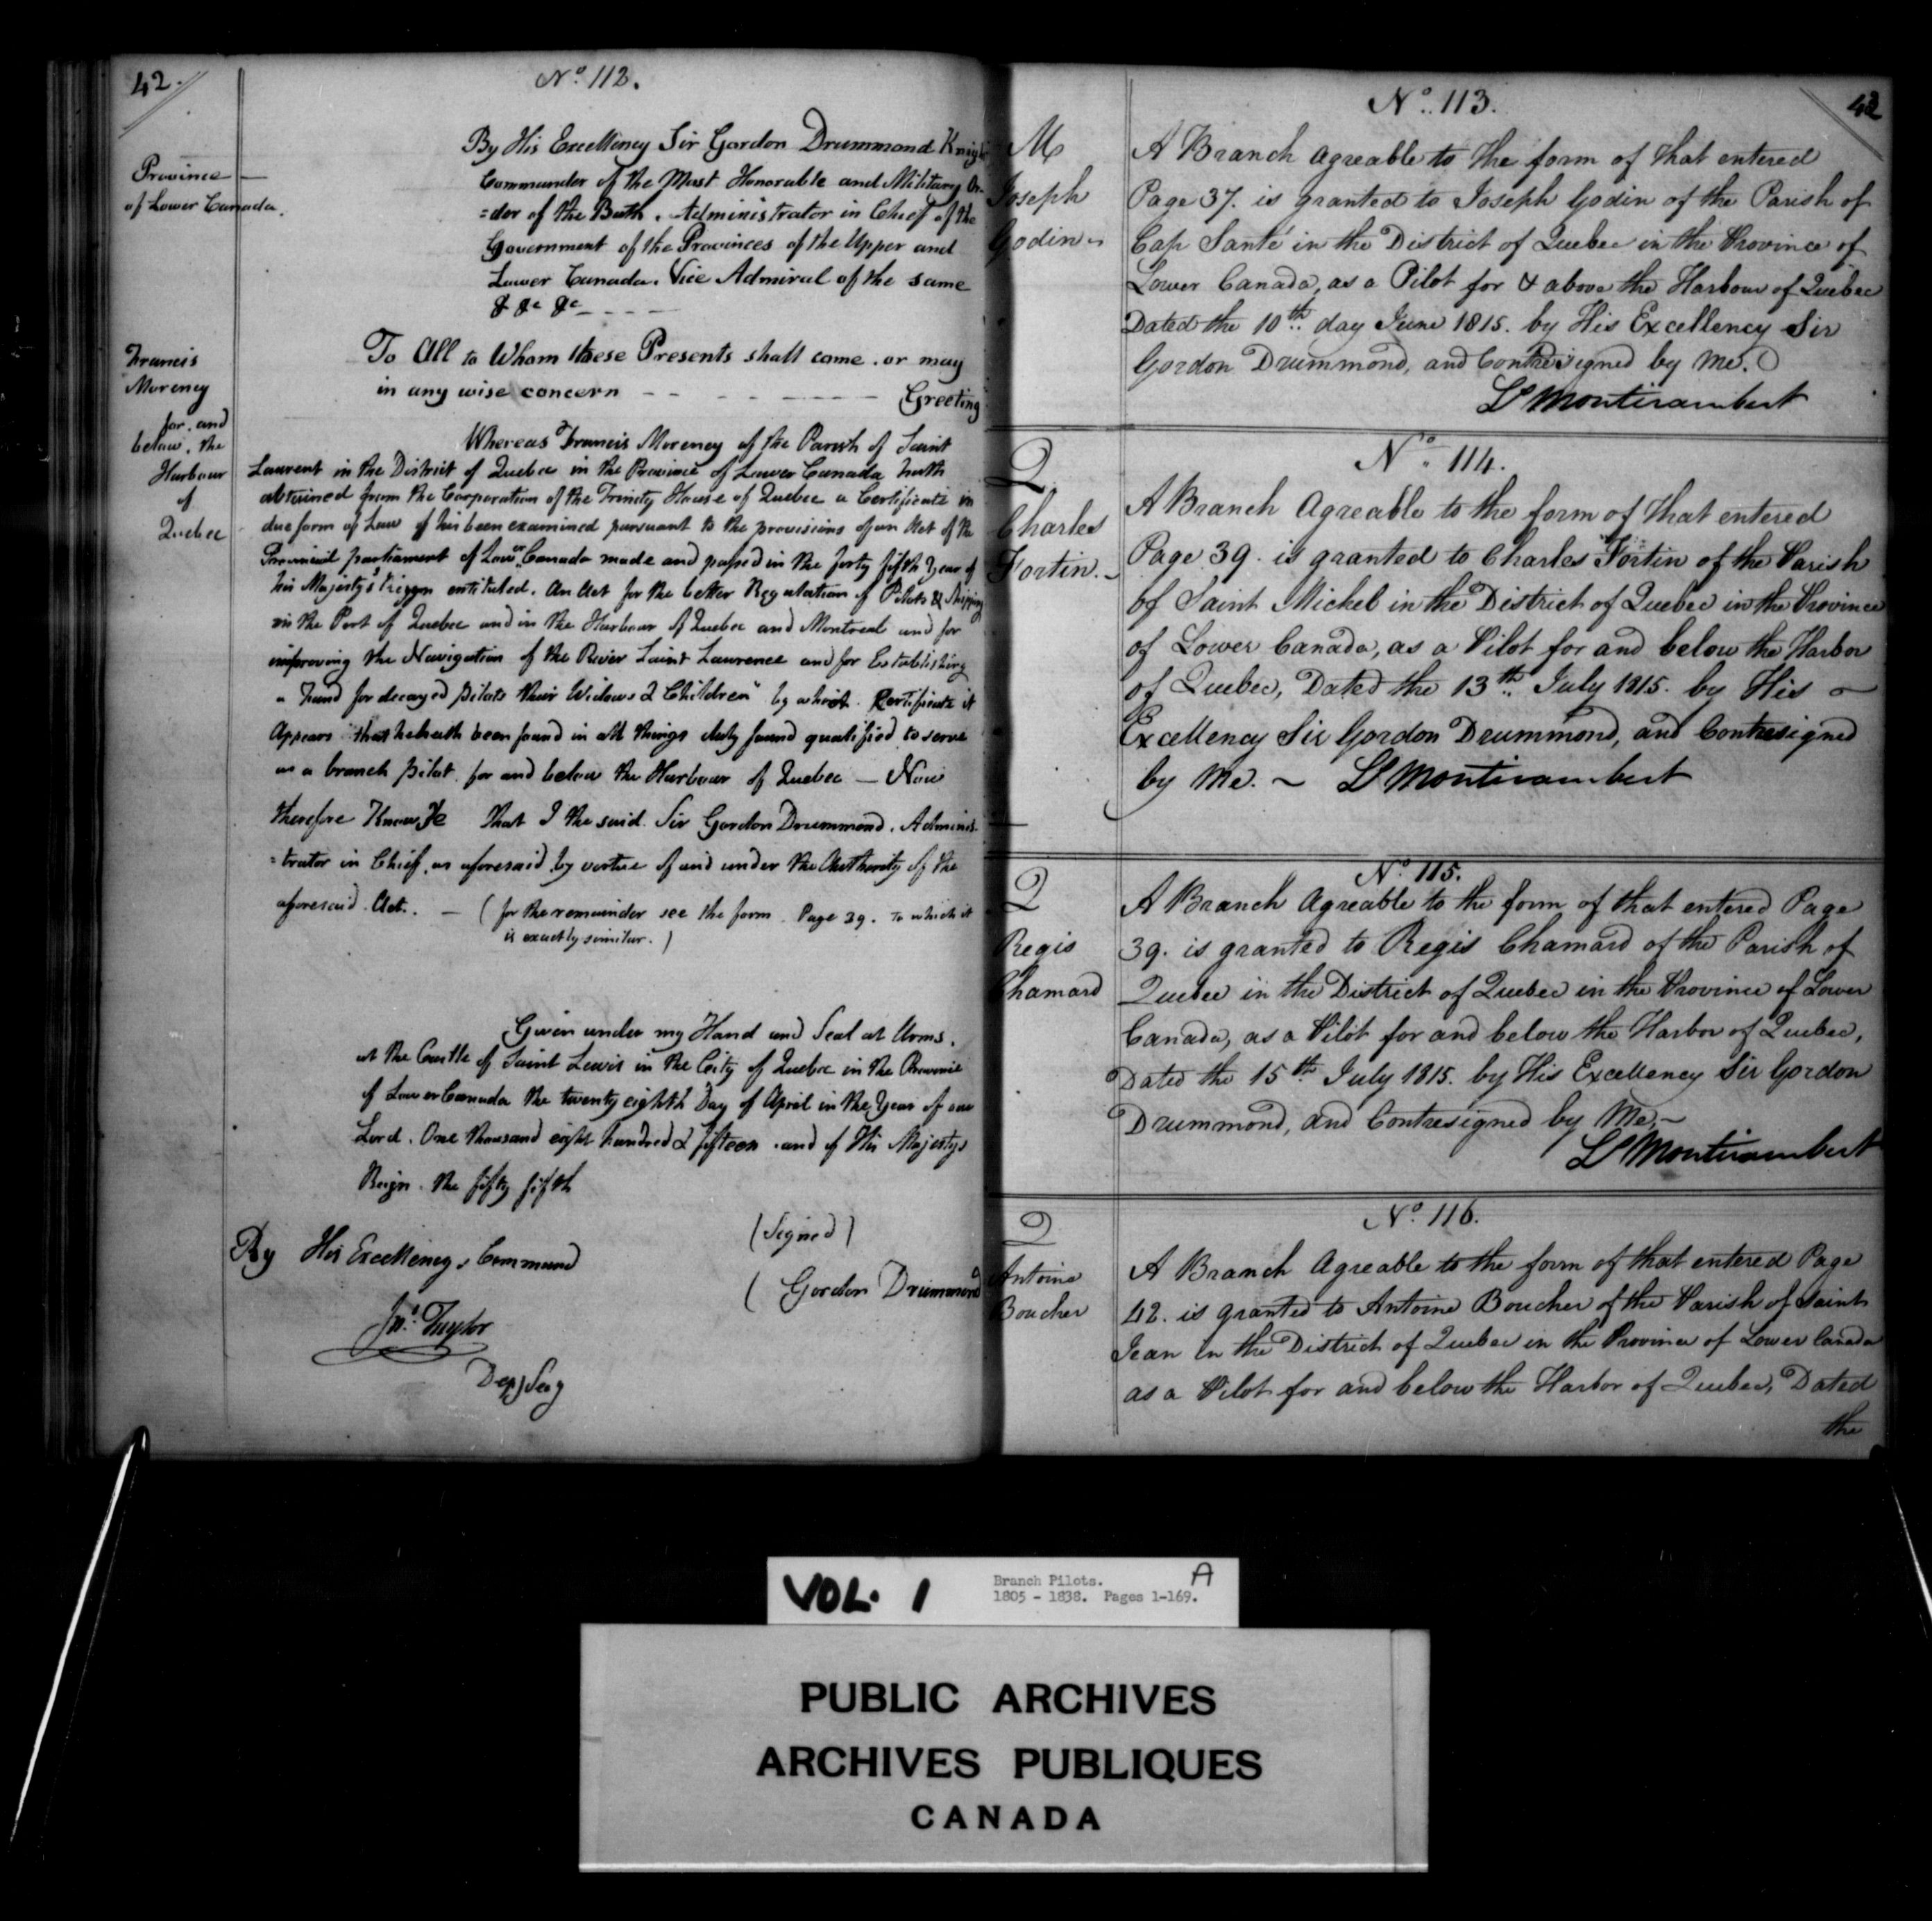 42.
No. 112.
Province
of Lower Canada.
By His Excellency Sir Gordon Drummond Knigh
Commander of the Most Honorable and Military Or-
=der of the Bath. Administrator in Chief of the
Government of the Provinces of the Upper and
Lower Canada. Vice Admiral of the same
& &c &c
To All to Whom these Presents shall come. or may
in any wise concern Greeting
Francis
Moreney
for. and
below. the
Harbour
of
Quebec
Whereas Francis Moreney of the Parish of Saint
Laurent in the District of Quebec in the Province of Lower Canada hath
obtained from the Corporation of the Trinity House of Quebec a Certificate in
due form of Law of his been examined pursuant to the provisions of an Act of the
Provincial parliament of Lower Canada made and passed in the forty fifth Year of
his Majesty's reign entituled. An Act for the better Regulation of Pilots & Shipping
in the Port of Quebec and in the Harbour of Quebec and Montreal and for
improving the Navigation of the River Saint Lawrence and for Establishing
a Fund for decayed pilots their Widows & Children" by which Certificate it
Appears that he hath been found in all things duly found qualified to serve
as a branch pilot. for and below the Harbour of Quebec — Now
therefore Know Ye that I the said. Sir Gordon Drummond. Adminis-
=trator in Chief. as aforesaid by vertue of and under the Authority of the
aforesaid. Act. — ( for the remainder see the form Page 39. to which it
is exactly similar. )
Given under my Hand and Seal at Arms.
at the Castle of Saint Lewis in the City of Quebec in the Province
of Lower Canada the twenty eighth Day of April in the Year of our
Lord. One thousand eight hundred & fifteen. and of His Majestys
Reign. the fifty fifth
(Signed)
By His Excellency's Command
( Gordon Drummond
Jno. Taylor
Depy Secy
43
No. 113.
M
Joseph
Godin
A Branch agreable to the form of that entered
Page 37. is granted to Joseph Godin of the Parish of
Cap Santé in the District of Quebec in the Province of
Lower Canada, as a Pilot for & above the Harbour of Quebec
Dated the 10th. day June 1815. by His Excellency Sir
Gordon Drummond, and Contresigned by Me.
Ls Montizambert
No. 114.
Q
Charles
Fortin.
A Branch Agreable to the form of that entered
Page 39. is granted to Charles Fortin of the Parish
of Saint Mickel in the District of Quebec in the Province
of Lower Canada, as a Pilot for and below the Harbor
of Quebec, Dated the 13th. July 1815. by His
Excellency Sir Gordon Drummond, and Contresigned
by Me. ~ Ls Montizambert
No. 115.
Q
Regis
Chamard
A Branch Agreable to the form of that entered Page
39. is granted to Regis Chamard of the Parish of
Quebec in the District of Quebec in the Province of Lower
Canada, as a Pilot for and below the Harbor of Quebec,
Dated the 15th July 1815. by His Excellency Sir Gordon
Drummond, and Contresigned by Me,~
Ls Montizambert
No. 116.
Q
Antoine
Boucher
A Branch Agreable to the form of that entered Page
42. is granted to Antoine Boucher of the Parish of Saint
Jean in the District of Quebec in the Province of Lower Canada
as a Pilot for and below the Harbor of Quebec, Dated
the
VOL. 1
Branch Pilots. A
1805 - 1838. Pages 1-169.
PUBLIC ARCHIVES
ARCHIVES PUBLIQUES
CANADA